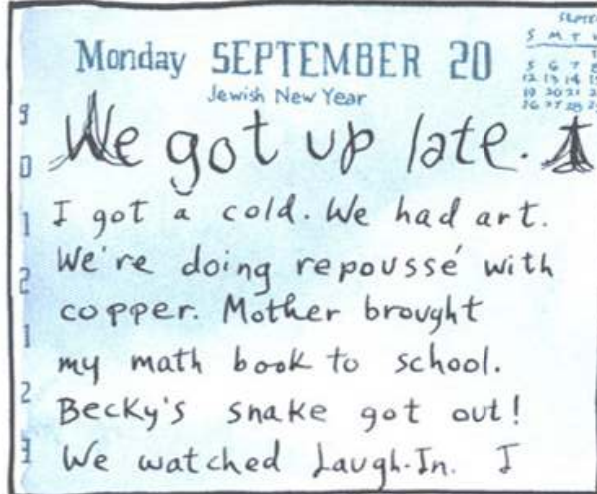 Monday SEPTEMBER 20
Jewish New Year
We got up late. I
I got a cold. We had art.
We're doing repoussé with
copper. Mother brought
my math book to school.
Becky's snake got out!
We watched Laugh-In. I
S M T
5 6 7 8
12 13 14
19 20 21
26 27 28